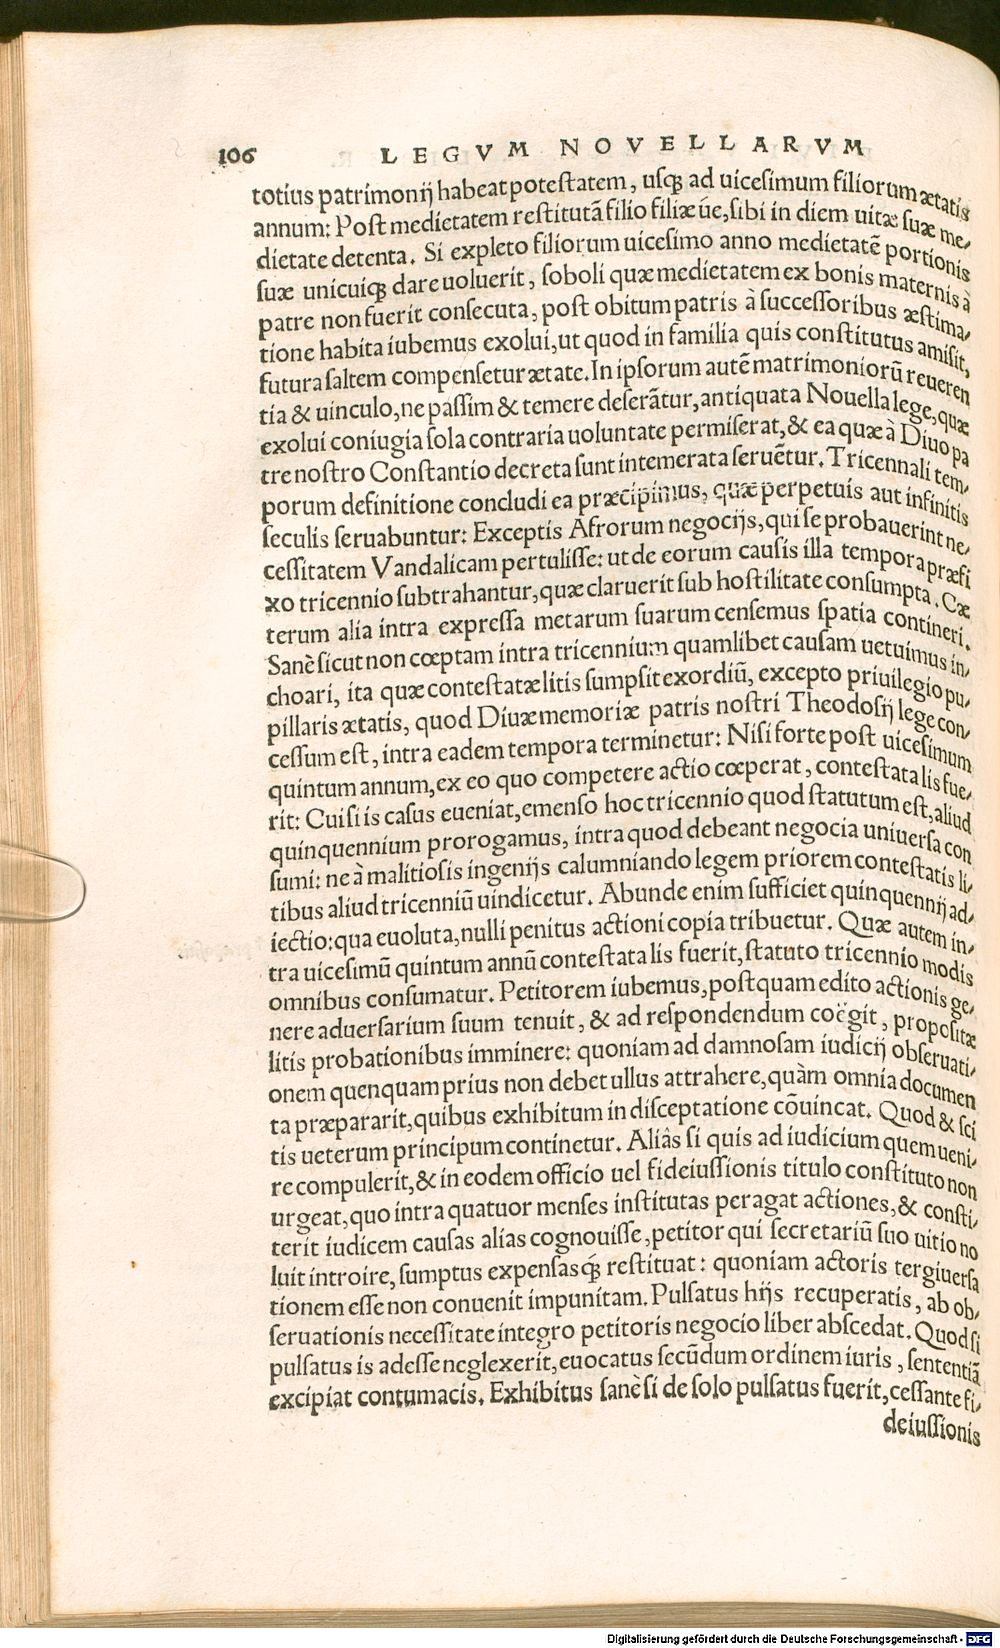 106 LEGVM NOVELLARVM
totius patrimonij habeat potestatem, usq́ꝫ ad uicesimum filiorum ætatis
annum: Post medietatem restitutã filio filiæ ũe, sibi in diem uitæ suæ me-
dietate detenta. Si expleto filiorum uicesimo anno medietatẽ portionis
suæ unicuiq́ꝫ dare uoluerit, soboli quæ medietatem ex bonis maternis à
patre non fuerit consecuta, post obitum patris à successoribus æstima-
tione habita iubemus exolui, ut quod in familia quis constitutus amisit,
futura saltem compensetur ætate. In ipsorum autẽ matrimoniorũ reueren
tia & uinculo, ne passim & temere deserãtur, antiquata Nouella lege, quæ
exolui coniugia sola contraria uoluntate permiserat, & ea quæ à Diuo pa
tre nostro Constantio decreta sunt intemerata seruẽtur. Tricennali tem-
porum definitione concludi ea præcipimus, quæ perpetuis aut infinitis
seculis seruabuntur: Exceptis Afrorum negocijs, qui se probauerint ne-
cessitatem Vandalicam pertulisse: ut de eorum causis illa tempora præfi
xo tricennio subtrahantur, quæ claruerit sub hostilitate consumpta. Cæ
terum alia intra expressa metarum suarum censemus spatia contineri.
Sanè sicut non cœptam intra tricennium quamlibet causam uetuimus in-
choari, ita quæ contestatæ litis sumpsit exordiũ, excepto priuilegio pu-
pillaris ætatis, quod Diuæ memoriæ patris nostri Theodosij lege con-
cessum est, intra eadem tempora terminetur: Nisi forte post uicesimum
quintum annum, ex eo quo competere actio cœperat, contestata lis fue-
rit: Cui si is casus eueniat, emenso hoc tricennio quod statutum est, aliud
quinquennium prorogamus, intra quod debeant negocia uniuersa con
sumi: ne à malitiosis ingenijs calumniando legem priorem contestatis li-
tibus aliud tricenniũ uindicetur. Abunde enim sufficiet quinquennij ad-
iectio: qua euoluta, nulli penitus actioni copia tribuetur. Quæ autem in-
tra uicesimũ quintum annũ contestata lis fuerit, statuto tricennio modis
omnibus consumatur. Petitorem iubemus, postquam edito actionis ge-
nere aduersarium suum tenuit, & ad respondendum coëgit, propositæ
litis probationibus imminere: quoniam ad damnosam iudicij obseruati-
onem quenquam prius non debet ullus attrahere, quàm omnia documen
ta præpararit, quibus exhibitum in disceptatione cõuincat. Quod & sci
tis ueterum principum continetur. Aliâs si quis ad iudicium quem ueni-
re compulerit, & in eodem officio uel fideiussionis titulo constituto non
urgeat, quo intra quatuor menses institutas peragat actiones, & consti-
terit iudicem causas alias cognouisse, petitor qui secretariũ suo uitio no
luit introire, sumptus expensasq́ꝫ restituat: quoniam actoris tergiuersa
tionem esse non conuenit impunitam. Pulsatus hijs recuperatis, ab ob-
seruationis necessitate integro petitoris negocio liber abscedat. Quod si
pulsatus is adesse neglexerit, euocatus secũdum ordinem iuris, sententiã
excipiat contumacis. Exhibitus sanè si de solo pulsatus fuerit, cessante fi-
deiussionis
Digitalisierung gefördert durch die Deutsche Forschungsgemeinschaft - DFG